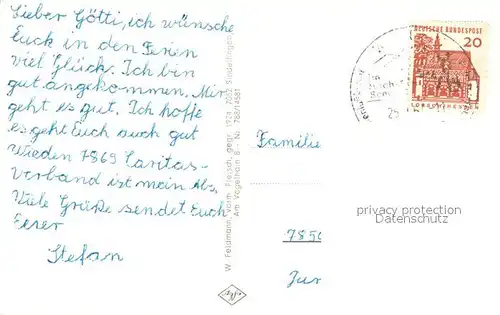 Lieber Götti, ich wünsche
Euck in den Ferien
viel Glück. Ich bin
gut angekommen. Mir
geht es gut. Ich hoffe
es geht Euch auch gut
Wieden 7869 Caritas-
verband ist mein Abs.
Viele Grüße sendet Euch
Eurer
Stefan
W. Feldmann, vorm. Fleisch, gegr. 1924, 7032 Sindelfingen
Am Vogelhain 8 - Nr.
DEUTSCHE BUNDESPOST
20
Familie
7850
Jur
privacy protection
Datenschutz